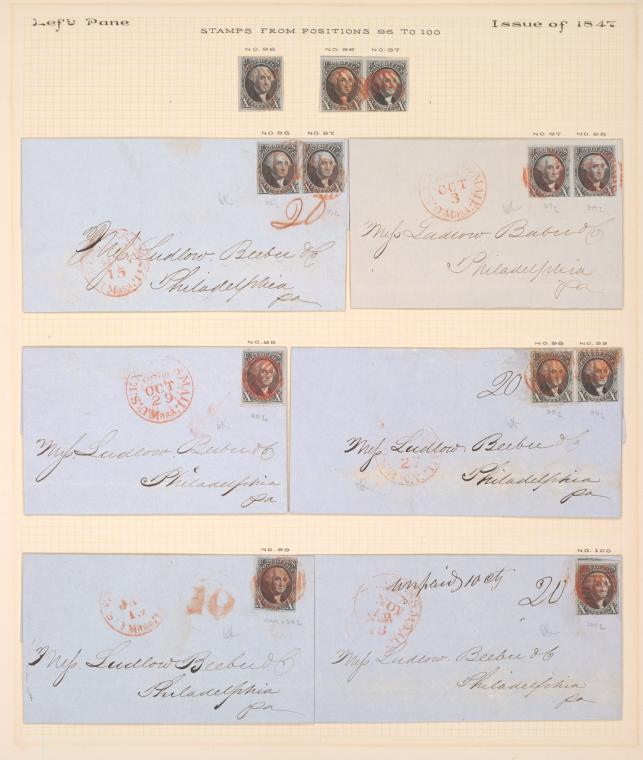 Left Pane
Issue of 1847
STAMPS FROM POSITIONS 96 TO 100
NO. 96
NO. 96 NO. 97
NO. 96 NO. 97
20
15
Mass.
Mess Ludlow Beebee & C
Philadelphia
pa
NO. 97 NO. 98
OCT
3
Mass.
MAIL
Mess Ludlow Beebee & C
Philadelphia
pa
NO. 98
OCT
29
Mass.
MAIL
Mess Ludlow Beebee & C
Philadelphia
pa
NO. 98 NO. 99
20
27
Mess Ludlow Beebee & C
Philadelphia
pa
NO. 99
19
10
Mess Ludlow Beebee & C
Philadelphia
pa
NO. 100
unpaid 10 cts
20
NOV
Mess Ludlow Beebee & C
Philadelphia
pa